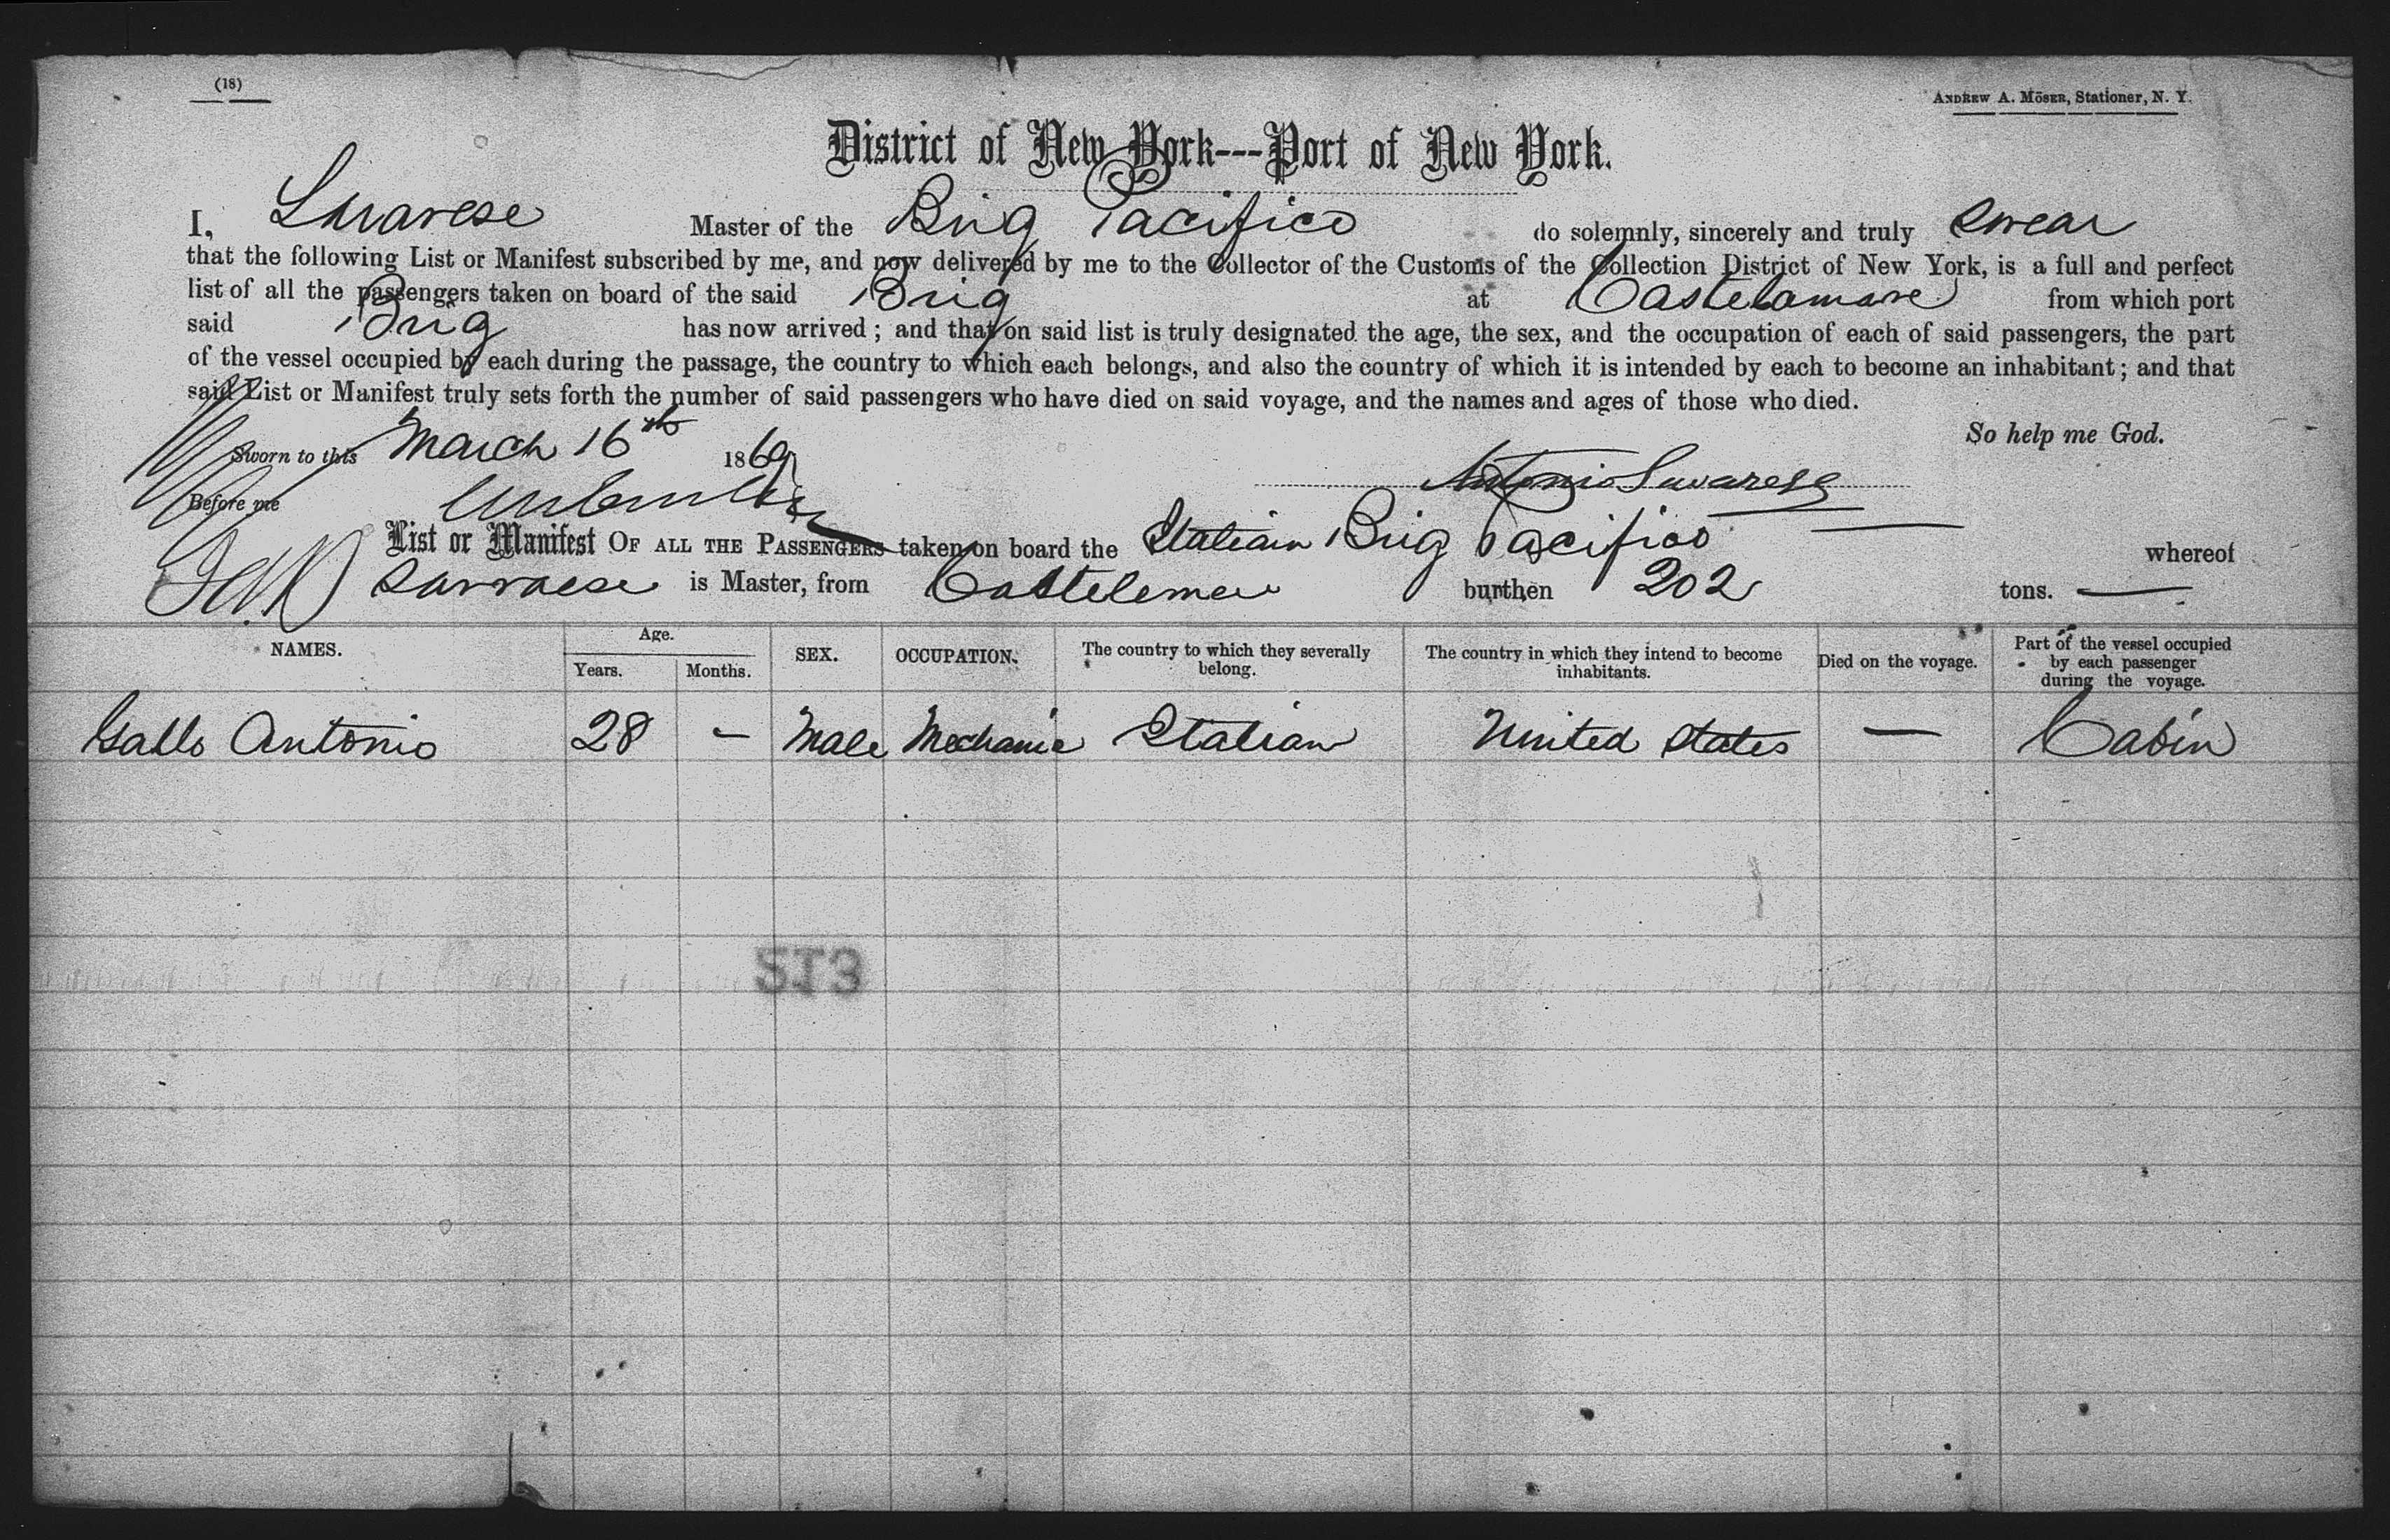 (18)
ANDREW A. MÖSER, Stationer, N. Y.
District of New York---Port of New York.
I, Savarese Master of the Brig Pacifico do solemnly, sincerely and truly swear
that the following List or Manifest subscribed by me, and now delivered by me to the Collector of the Customs of the Collection District of New York, is a full and perfect
list of all the passengers taken on board of the said Brig at Castelamare from which port
said Brig has now arrived; and that on said list is truly designated the age, the sex, and the occupation of each of said passengers, the part
of the vessel occupied by each during the passage, the country to which each belongs, and also the country of which it is intended by each to become an inhabitant; and that
said List or Manifest truly sets forth the number of said passengers who have died on said voyage, and the names and ages of those who died.
So help me God.
Sworn to this March 16th 1869
Antonio Savarese
Before me
List or Manifest OF ALL THE PASSENGERS taken on board the Italian Brig Pacifico whereof
is Master, from burthen 202 tons. —
NAMES. Age. Years. Months. SEX. OCCUPATION. The country to which they severally belong. The country in which they intend to become inhabitants. Died on the voyage. Part of the vessel occupied by each passenger during the voyage.
Gallo Antonio 28 – Male Mechanic Italian United States — Cabin